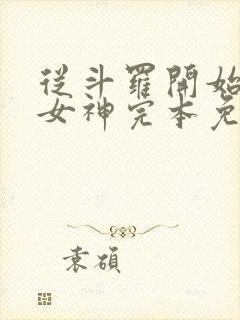 從斗羅開始
女神完本免
袁碩